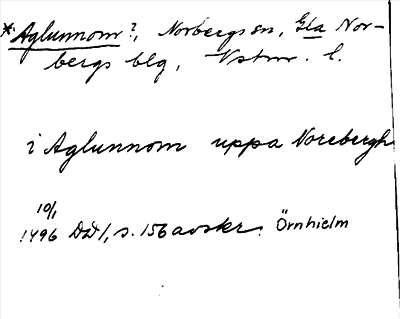 *Aglunnom?, Norbergs sn, Gla Nor-
bergs blg, Vstm. l.
i Aglunnom uppa Norebergh
10/1
1496 DD1, s. 156 avskr. Örnhielm